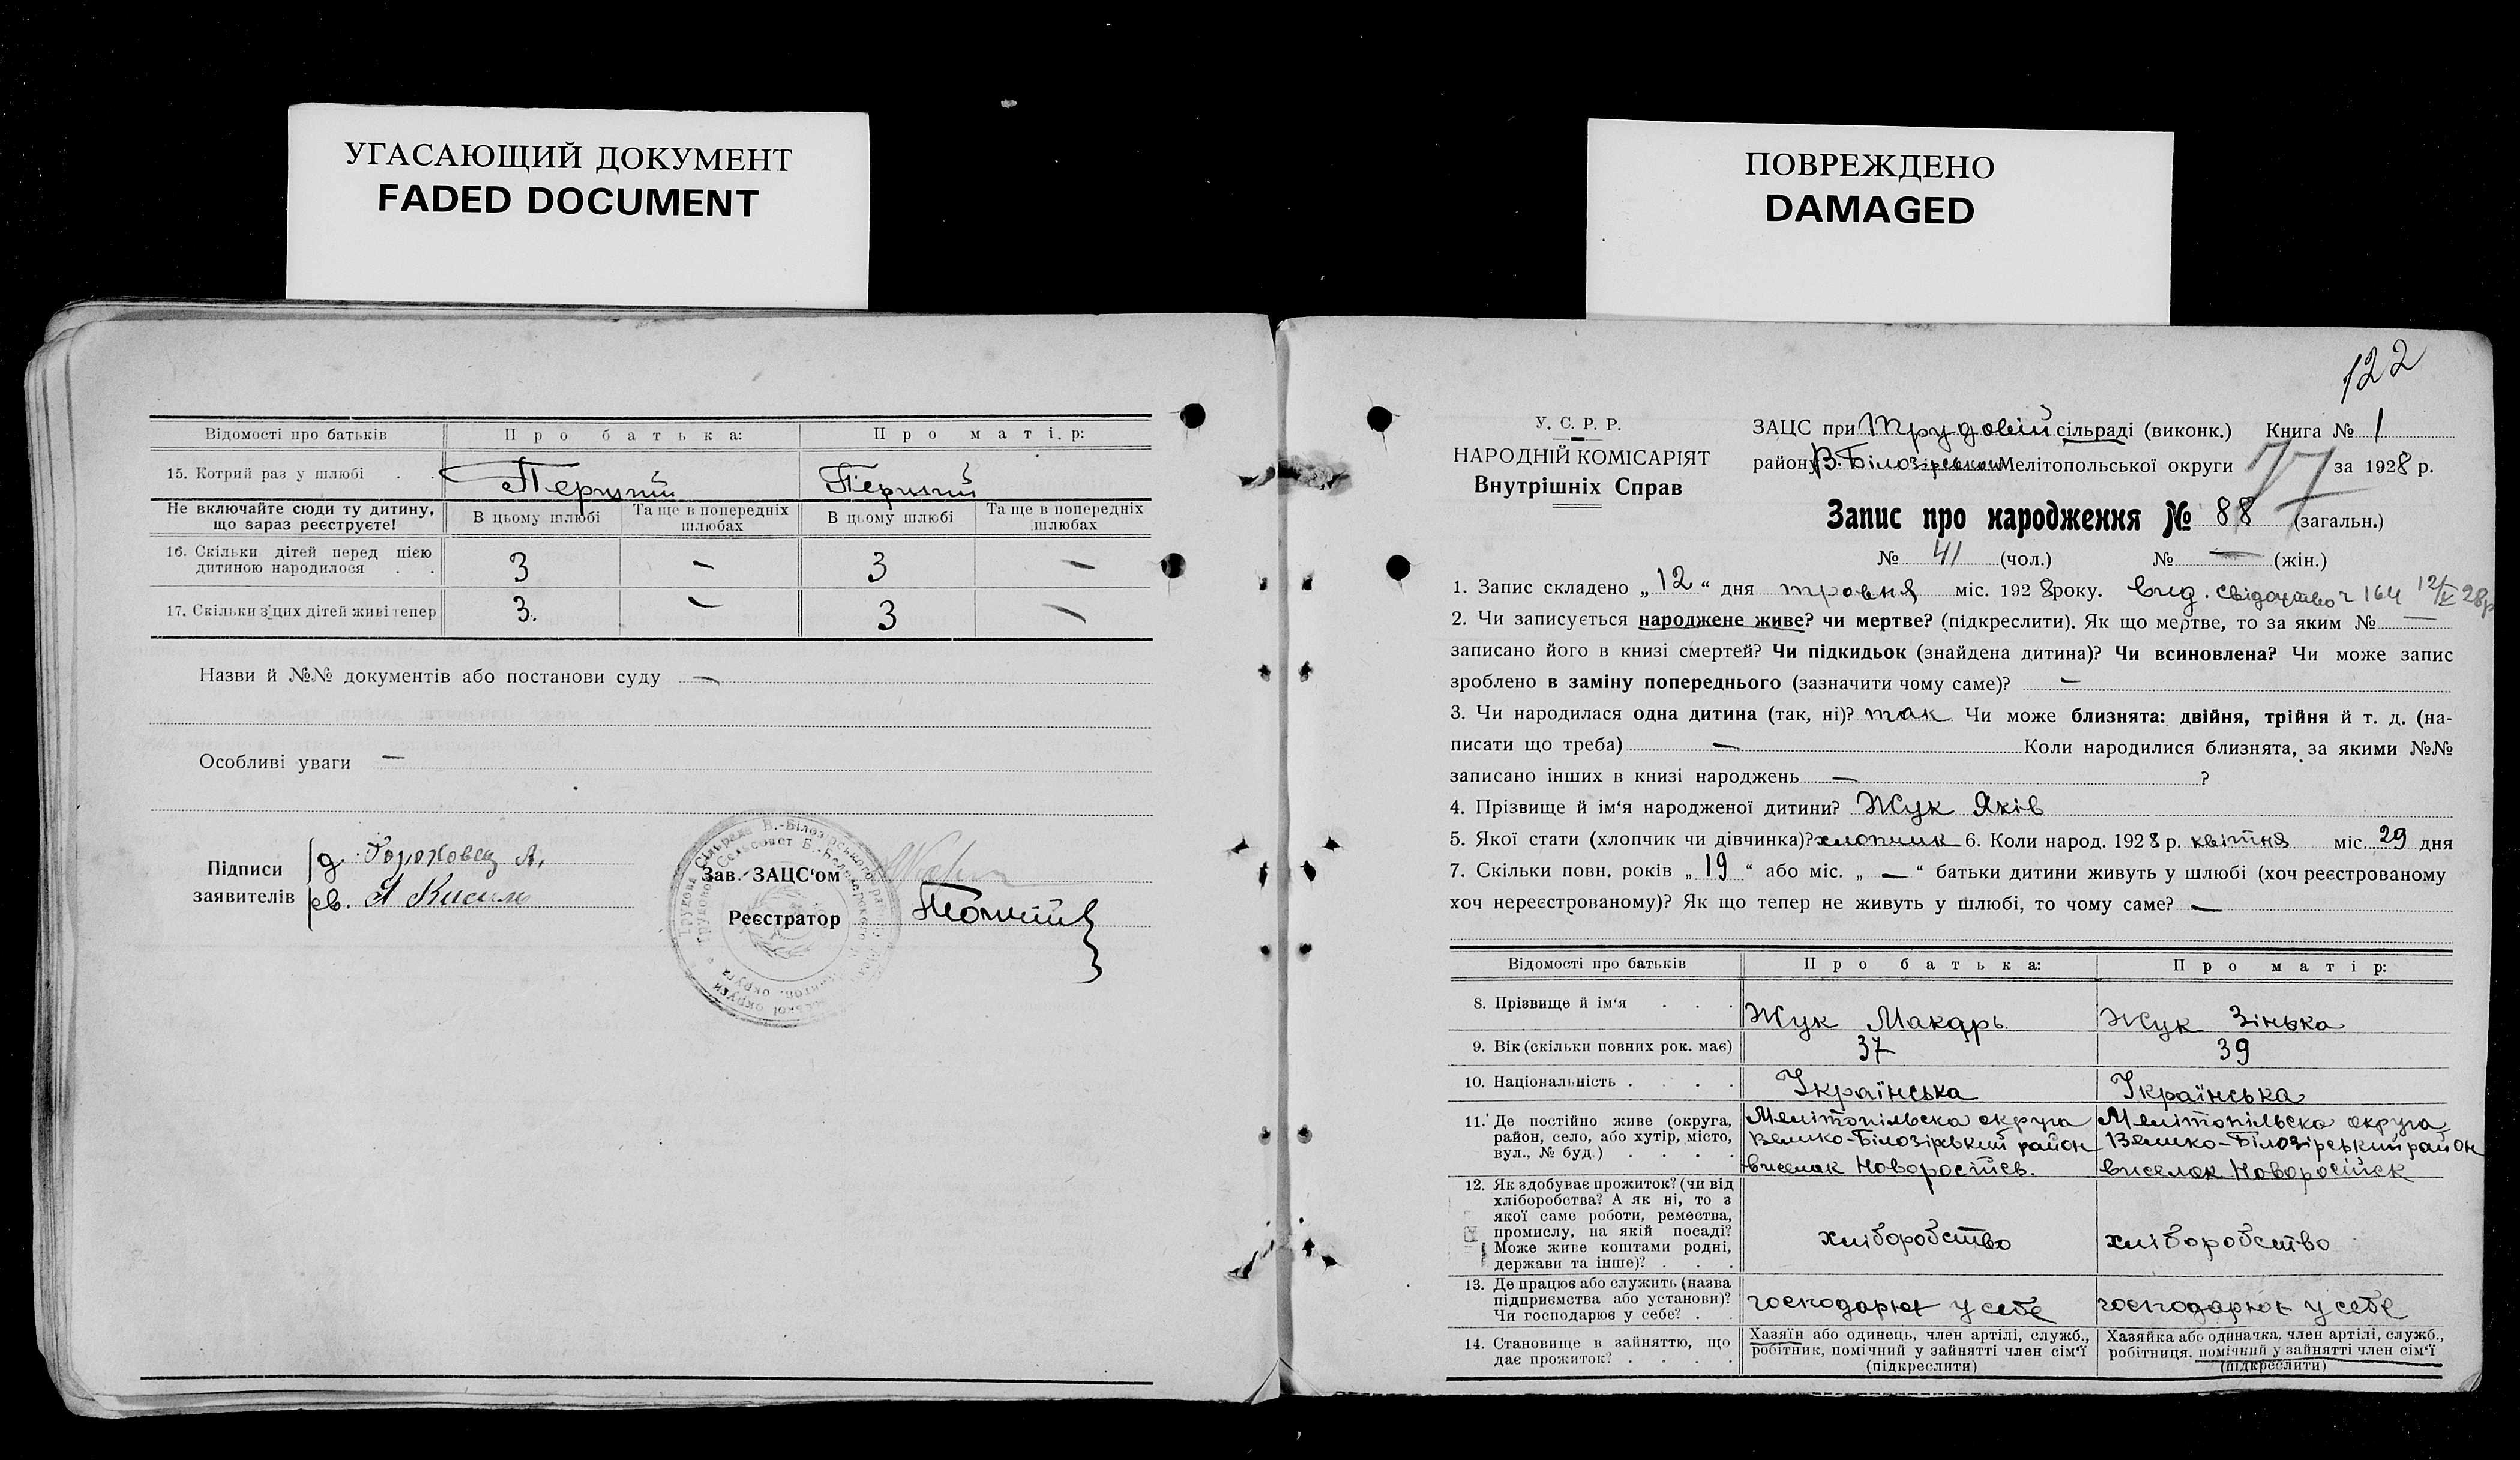 УГАСАЮЩИЙ ДОКУМЕНТ
FADED DOCUMENT
Відомості про батьків
Про батька:
Про матір:
15. Котрий раз у шлюбі . .
Перший
Перший
Не включайте сюди ту дитину, що зараз реєструєте!
В цьому шлюбі
Та ще в попередніх шлюбах
В цьому шлюбі
Та ще в попередніх шлюбах
16. Скільки дітей перед цією дитиною народилося . .
3 — 3 —
17. Скільки з цих дітей живі тепер
3. — 3 —
Назви й №№ документів або постанови суду —
Особливі уваги —
Підписи заявителів
д. Гороховец А.
св. А Кисиль
Зав. ЗАЦС‘ом
Реєстратор
ПОВРЕЖДЕНО
DAMAGED
122
У. С. Р. Р.
НАРОДНІЙ КОМІСАРІЯТ
Внутрішніх Справ
ЗАЦС при Трудовій сільраді (виконк.) Книга № 1
району В. Білозірськом Мелітопольської округи 77 за 1928 р.
Запис про народження № 88 (загальн.)
№ 41 (чол.) № — (жін.)
1. Запис складено „12“ дня травня міс. 1928 року. вид. свідоцтво ч 164 12/V 28р
2. Чи записується народжене живе? чи мертве? (підкреслити). Як що мертве, то за яким № —
записано його в книзі смертей? Чи підкидьок (знайдена дитина)? Чи всиновлена? Чи може запис
зроблено в заміну попереднього (зазначити чому саме)? —
3. Чи народилася одна дитина (так, ні)? так Чи може близнята: двійня, трійня й т. д. (на-
писати що треба) — Коли народилися близнята, за якими №№
записано інших в книзі народжень — ?
4. Прізвище й ім‘я народженої дитини? Жук Яків
5. Якої стати (хлопчик чи дівчинка)? хлопчик 6. Коли народ. 1928 р. квітня міс. 29 дня
7. Скільки повн. років „19“ або міс. „—“ батьки дитини живуть у шлюбі (хоч реєстрованому
хоч нереєстрованому)? Як що тепер не живуть у шлюбі, то чому саме? —
Відомості про батьків
Про батька:
Про матір:
8. Прізвище й ім‘я . . .
Жук Макарь
Жук Зінька
9. Вік (скільки повних рок. має)
37
39
10. Національність . . . .
Українська
Українська
11. Де постійно живе (округа, район, село, або хутір, місто, вул., № буд.) . . . .
Мелітопільска округа
Велико-Білозірький район
виселок Новоросійсв.
Мелітопільска округа
Велико-Білозірький район
виселок Новоросійск
12. Як здобуває прожиток? (чи від хліборобства? А як ні, то з якої саме роботи, ремества, промислу, на якій посаді? Може живе коштами родні, держави та інше)? . . .
хліборобство
хліборобство
13. Де працює або служить (назва підприємства або установи)? Чи господарює у себе? . .
господарює у себе
господарює у себе
14. Становище в зайняттю, що дає прожиток? . . . .
Хазяїн або одинець, член артілі, служб., робітник, помічний у зайнятті член сім‘ї (підкреслити)
Хазяйка або одиначка, член артілі, служб., робітниця, помічний у зайнятті член сім‘ї (підкреслити)